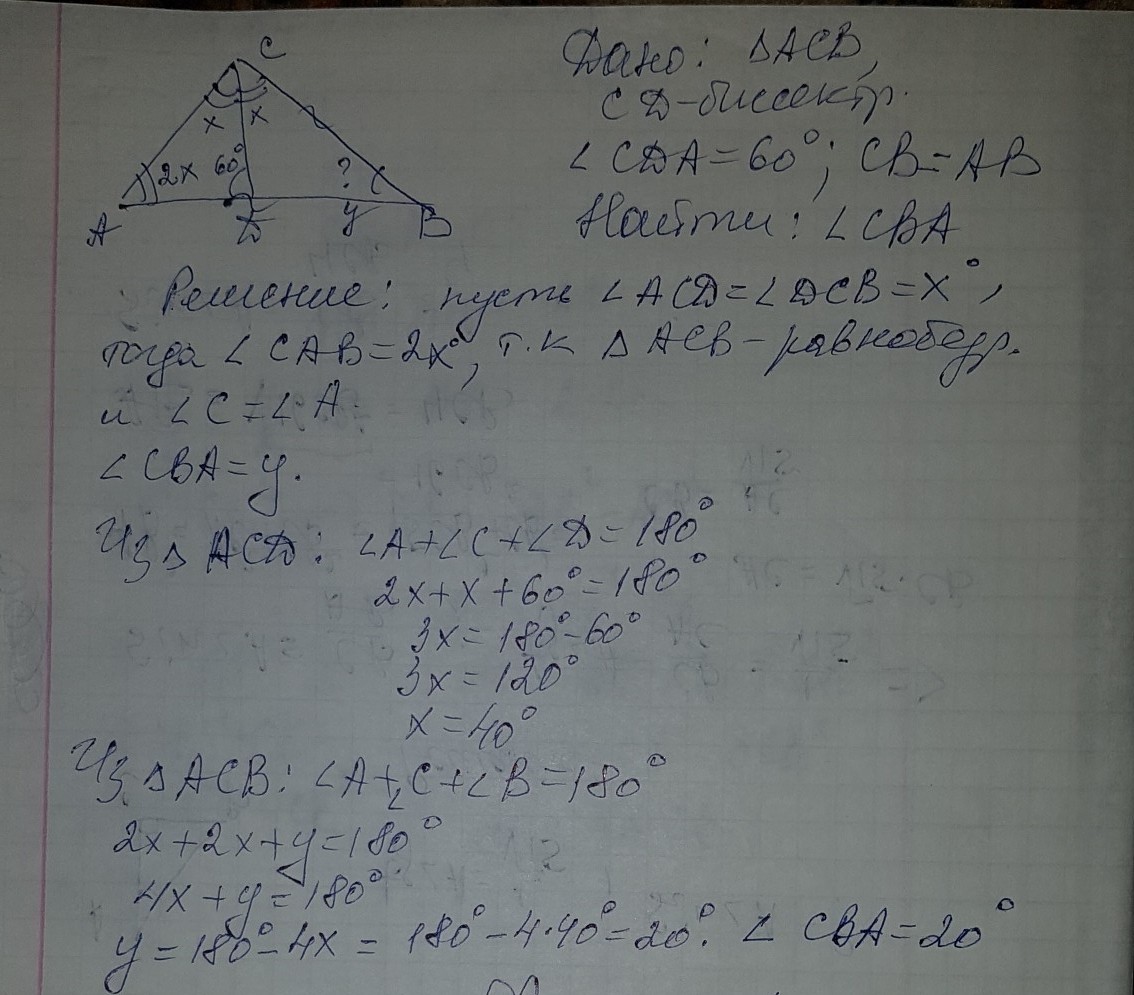 C
x x
2x 60° ?
A D y B
Дано: △ACB,
CD-биссектр.
∠CDA=60°; CB=AB
Найти: ∠CBA
Решение: пусть ∠ACD=∠DCB=x°,
тогда ∠CAB=2x°, т.к △ACB-равнобедр.
и ∠C=∠A.
∠CBA=y.
Из △ACD: ∠A+∠C+∠D=180°
2x+x+60°=180°
3x=180°-60°
3x=120°
x=40°
Из △ACB: ∠A+∠C+∠B=180°
2x+2x+y=180°
4x+y=180°
y=180°-4x=180°-4·40°=20°. ∠CBA=20°